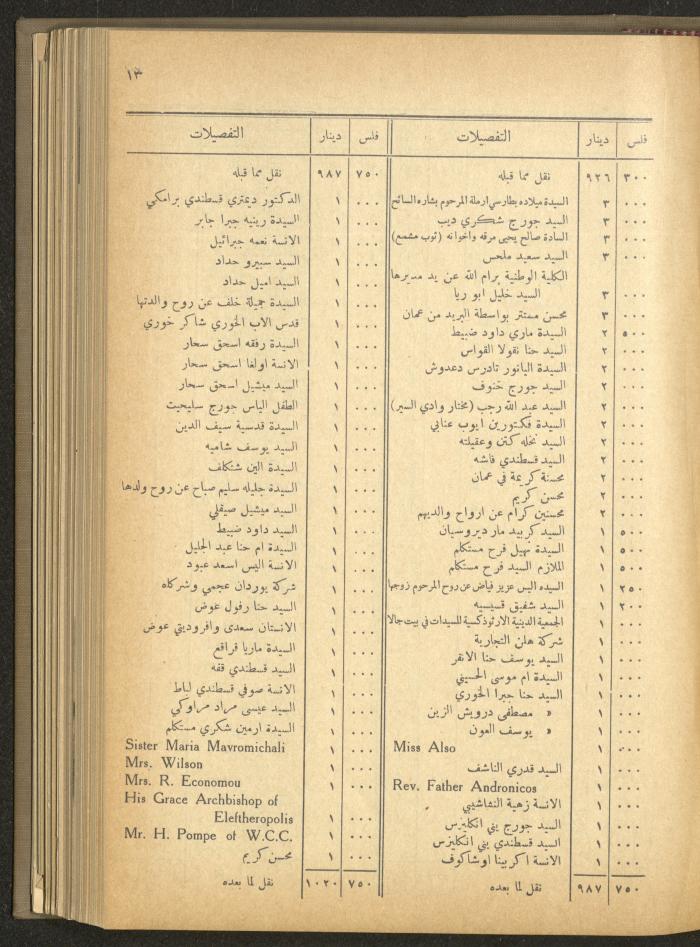 ١٣
فلس دينار التفصيلات
٣٠٠ ٩٢٦ نقل مما قبله
٠٠٠ ٣ السيدة ميلاده بطارسي ارملة المرحوم بشاره السائح
٠٠٠ ٣ السيد جورج شكري ديب
٠٠٠ ٣ السادة صالح يحيى مرقه واخوانه (ثوب مشمع)
٠٠٠ ٣ السيد سعيد ملحس
الكلية الوطنية برام الله عن يد مديرها
٠٠٠ ٣ السيد خليل ابو ريا
٠٠٠ ٣ محسن مستتر بواسطة البريد من عمان
٥٠٠ ٢ السيدة ماري داود ضبيط
٠٠٠ ٢ السيد حنا نقولا القواس
٠٠٠ ٢ السيدة اليانور تادرس دعدوش
٠٠٠ ٢ السيد جورج خنوف
٠٠٠ ٢ السيد عبد الله رجب (مختار وادي السير)
٠٠٠ ٢ السيدة فكتورين ايوب عنابي
٠٠٠ ٢ السيد نخله كتن وعقيلته
٠٠٠ ٢ السيد قسطندي فاشه
٠٠٠ ٢ محسنة كريمة في عمان
٠٠٠ ٢ محسن كريم
٠٠٠ ٢ محسنين كرام عن ارواح والديهم
٥٠٠ ١ السيد كربيد مار ديروسيان
٥٠٠ ١ السيدة سهيل فرح مستكلم
٥٠٠ ١ الملازم السيد فرح مستكلم
٢٥٠ ١ السيده اليس عزيز فياض عن روح المرحوم زوجها
٢٠٠ ١ السيد شفيق قسيسيه
٠٠٠ ١ الجمعية الدينية الارثوذكسية للسيدات في بيت جالا
٠٠٠ ١ شركة هلن التجارية
٠٠٠ ١ السيد يوسف حنا الانقر
٠٠٠ ١ السيدة ام موسى الحسيني
٠٠٠ ١ السيد حنا جبرا الخوري
٠٠٠ ١ « مصطفى درويش الزين
٠٠٠ ١ « يوسف العون
٠٠٠ ١ Miss Also
٠٠٠ ١ السيد قدري الناشف
٠٠٠ ١ Rev. Father Andronicos
٠٠٠ ١ الانسة زهية النشاشيبي
٠٠٠ ١ السيد جورج يني انكليزس
٠٠٠ ١ السيد قسطندي يني انكليزس
٠٠٠ ١ الانسة اكربينا اوشاكوف
٧٥٠ ٩٨٧ نقل لما بعده
فلس دينار التفصيلات
٧٥٠ ٩٨٧ نقل مما قبله
٠٠٠ ١ الدكتور ديمتري قسطندي برامكي
٠٠٠ ١ السيدة رينيه جبرا جابر
٠٠٠ ١ الانسة نعمه جبرائيل
٠٠٠ ١ السيد سبيرو حداد
٠٠٠ ١ السيد اميل حداد
٠٠٠ ١ السيدة جميلة خلف عن روح والدتها
٠٠٠ ١ قدس الاب الخوري شاكر خوري
٠٠٠ ١ السيدة رفقه اسحق سحار
٠٠٠ ١ الانسة اولغا اسحق سحار
٠٠٠ ١ السيد ميشيل اسحق سحار
٠٠٠ ١ الطفل الياس جورج سليحيت
٠٠٠ ١ السيدة قدسية سيف الدين
٠٠٠ ١ السيد يوسف شاميه
٠٠٠ ١ السيدة الين شتكلف
٠٠٠ ١ السيدة جليله سليم صباح عن روح ولدها
٠٠٠ ١ السيد ميشيل صيقلي
٠٠٠ ١ السيد داود ضبيط
٠٠٠ ١ السيدة ام حنا عبد الجليل
٠٠٠ ١ الانسة اليس اسعد عبود
٠٠٠ ١ شركة يوردان عجمي وشركاه
٠٠٠ ١ السيد حنا رفول عوض
٠٠٠ ١ الانستان سعدى وافروديتي عوض
٠٠٠ ١ السيدة ماريا قراقع
٠٠٠ ١ السيد قسطندي قفه
٠٠٠ ١ الانسة صوفي قسطندي لباط
٠٠٠ ١ السيد عيسى مراد مراوكي
٠٠٠ ١ السيدة ارمين شكري مستكلم
٠٠٠ ١ Sister Maria Mavromichali
٠٠٠ ١ Mrs. Wilson
٠٠٠ ١ Mrs. R. Economou
His Grace Archbishop of
٠٠٠ ١ Eleftheropolis
٠٠٠ ١ Mr. H. Pompe of W.C.C.
٠٠٠ ١ محسن كريم
٧٥٠ ١٠٢٠ نقل لما بعده